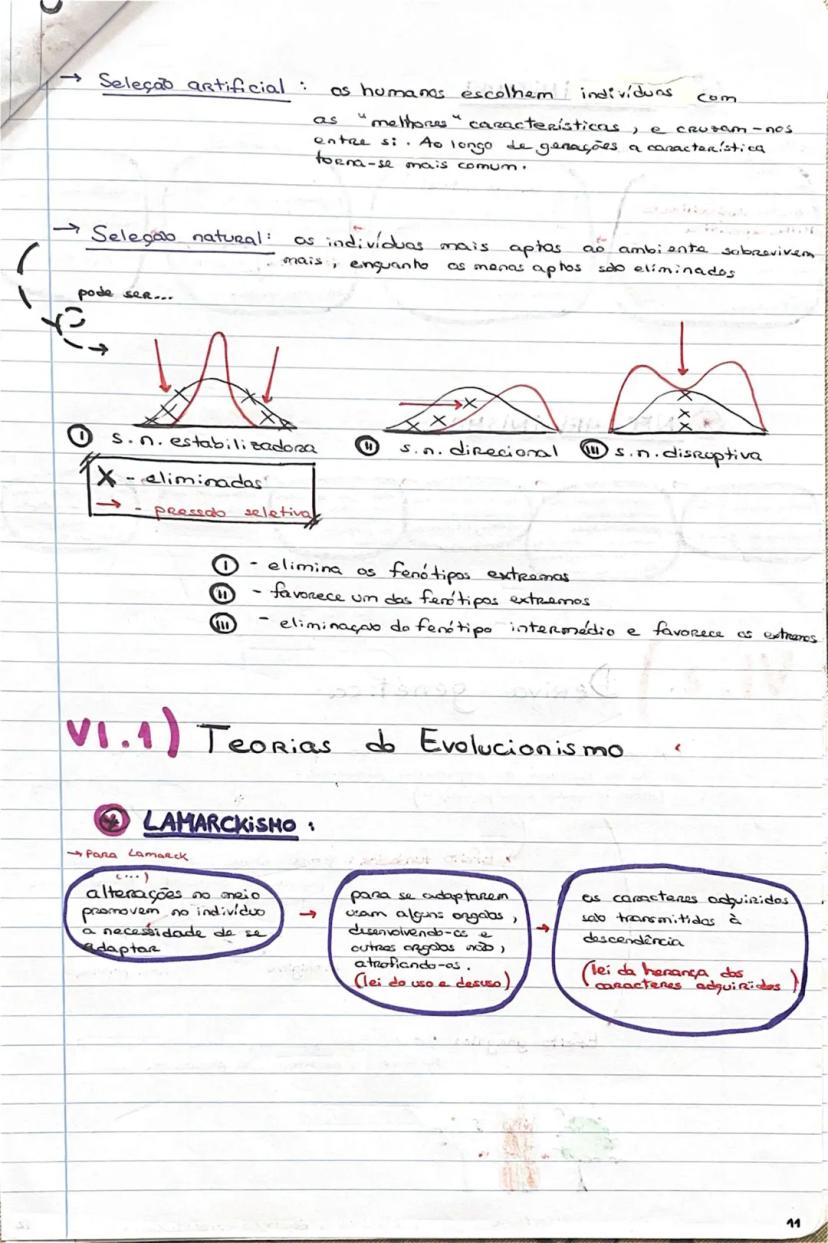 → Seleção artificial : os humanos escolhem indivíduos com
as "melhores" características, e cruzam-nos
entre si. Ao longo de gerações a característica
torna-se mais comum.
→ Seleção natural: os indivíduos mais aptos ao ambiente sobrevivem
mais, enquanto os menos aptos são eliminados
pode ser...
I s.n. estabilizadora
II s.n. direcional
III s.n. disruptiva
X - eliminados
→ - pressão seletiva
I - elimina os fenótipos extremos
II - favorece um dos fenótipos extremos
III - eliminação do fenótipo intermédio e favorece os extremos
VI.1) Teorias do Evolucionismo
* LAMARCKISMO :
→ Para Lamarck
(...)
alterações no meio
promovem no indivíduo
a necessidade de se
adaptar
→
para se adaptarem
usam alguns orgãos,
desenvolvendo-os e
outros orgãos não,
atrofiando-os.
(lei do uso e desuso)
→
os caracteres adquiridos
são transmitidos à
descendência
(lei da herança dos
caracteres adquiridos)
11